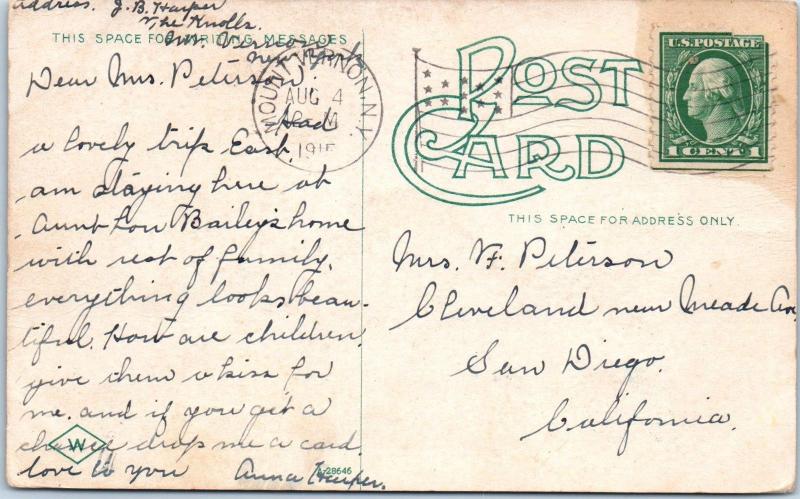 address. J. B. Harper
The Knolls.
Mt. Vernon
New York
THIS SPACE FOR WRITING MESSAGES
Dear Mrs. Peterson,
Had
a lovely trip East.
am staying here at
Aunt Lou Bailey's home
with rest of family,
everything looks beau-
tiful. How are children,
give them a kiss for
me. and if you get a
chance drop me a card.
love to you Anna Harper.
W
A-28646
MOUNT VERNON, N.Y.
AUG 4
M
1915
POST CARD
U.S. POSTAGE
1 CENT 1
THIS SPACE FOR ADDRESS ONLY.
Mrs. F. Peterson
Cleveland near Meade Av
San Diego.
California.